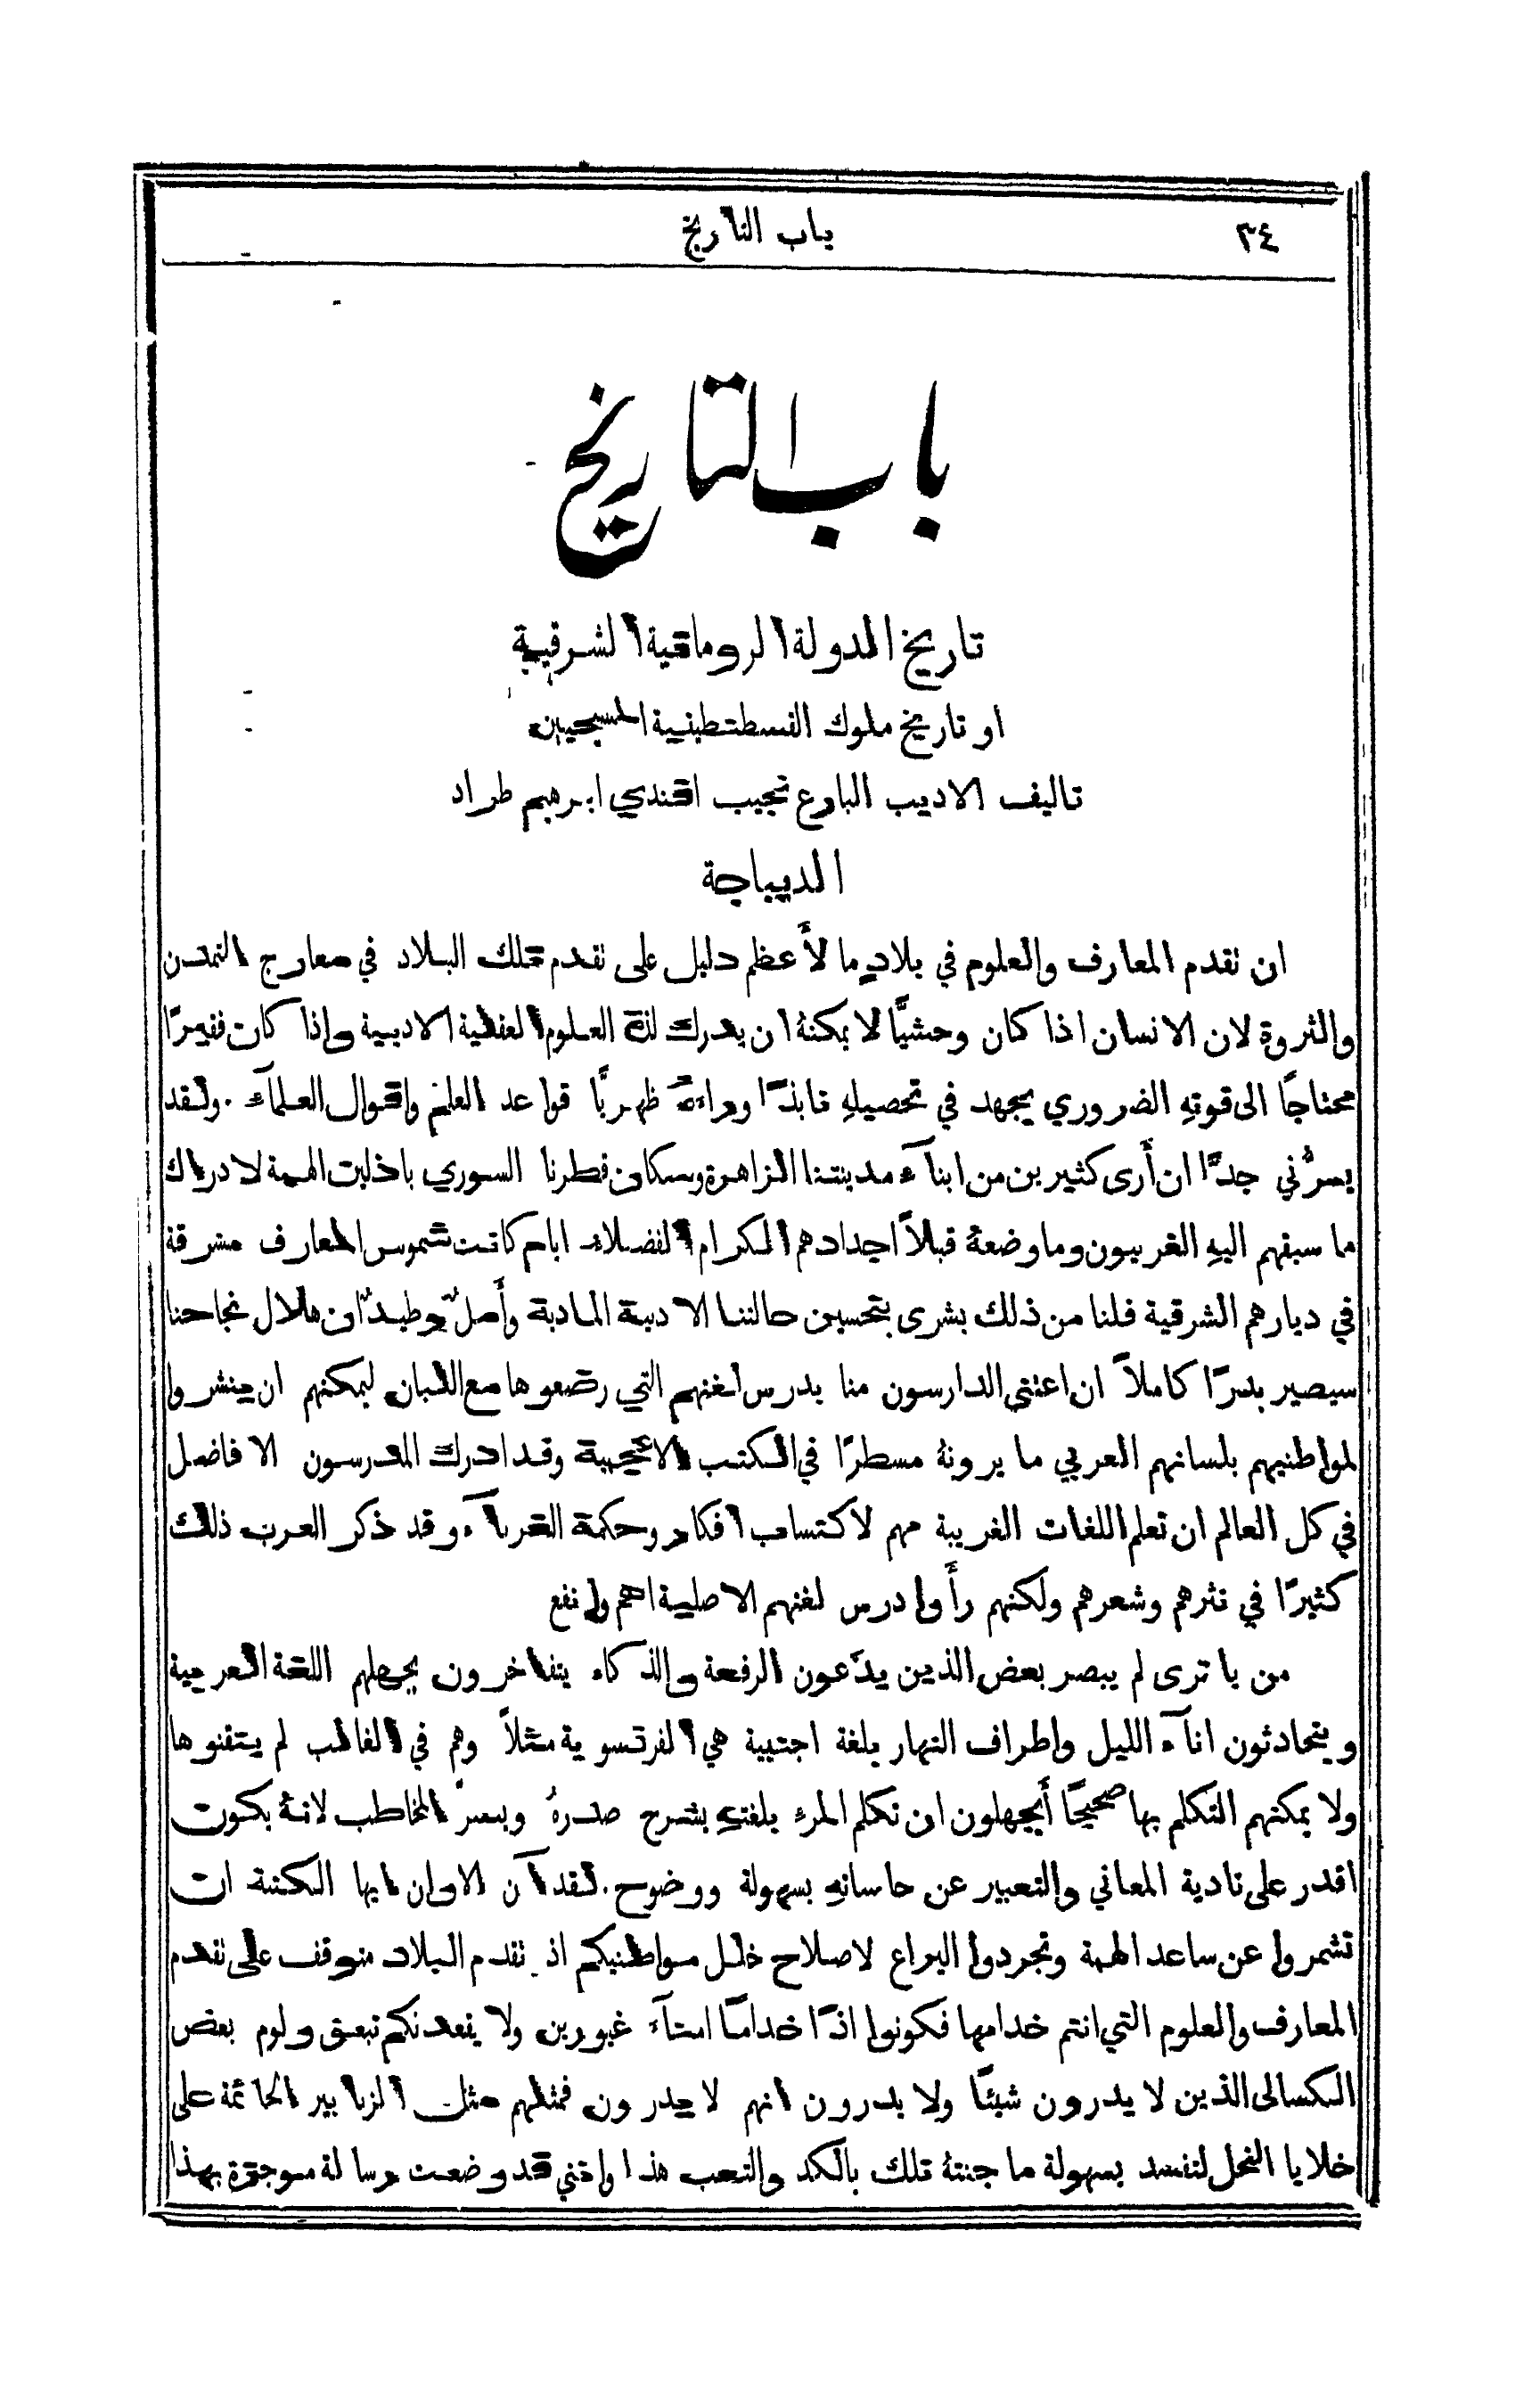 ٣٤
باب التاريخ
باب التاريخ
تاريخ الدولة الرومانية الشرقية
او تاريخ ملوك القسطنطينية المسيحيين
تاليف الاديب البارع نجيب افندي ابرهيم طراد
الديباجة
ان تقدم المعارف والعلوم في بلادٍ ما لأَعظم دليل على تقدم تلك البلاد في معارج التمدن
والثروة لان الانسان اذا كان وحشيًّا لا يمكنهُ ان يدرك لذة العلوم العقلية الادبية واذا كان فقيرًا
محتاجًا الى قوتهِ الضروري يجهد في تحصيلهِ نابذًا وراءهُ ظهريًّا قواعد العلم واقوال العلمآء . ولقد
يسرُّني جدًّا ان أَرى كثيرين من ابنآء مدينتنا الزاهرة وسكان قطرنا السوري باذلين الهمة لادراك
ما سبقهم اليهِ الغربيون وما وضعهُ قبلاً اجدادهم الكرام الفضلاء ايام كانت شموس المعارف مشرقة
في ديارهم الشرقية فلنا من ذلك بشرى بتحسين حالتنا الادبية المادية وأَملٌ وطيدٌ ان هلال نجاحنا
سيصير بدرًا كاملاً ان اعتنى الدارسون منا بدرس لغتهم التي رضعوها مع اللبان ليمكنهم ان ينشروا
لمواطنيهم بلسانهم العربي ما يرونهُ مسطرًا في الكتب الاعجمية وقد ادرك المدرسون الافاضل
في كل العالم ان تعلم اللغات الغريبة مهم لاكتساب افكار وحكمة الغربآء وقد ذكر العرب ذلك
كثيرًا في نثرهم وشعرهم ولكنهم رأَوا درس لغتهم الاصلية اهم وانفع
من يا ترى لم يبصر بعض الذين يدَّعون الرفعة والذكاء يتفاخرون بجهلهم اللغة العربية
ويتحادثون انآء الليل واطراف النهار بلغة اجنبية هي الفرنسوية مثلاً وهم في الغالب لم يتقنوها
ولا يمكنهم التكلم بها صحيحًا أَيجهلون ان تكلم المرء بلغتهِ يشرح صدرهُ ويسرّ المخاطب لانهُ يكون
اقدر على تادية المعاني والتعبير عن حاساتهِ بسهولة ووضوح . لقد آن الاوان ايها الكتبة ان
تشمروا عن ساعد الهمة وتجردوا اليراع لاصلاح خلل مواطنيكم اذ تقدم البلاد متوقف على تقدم
المعارف والعلوم التي انتم خدامها فكونوا اذًا خدامًا امنآء غيورين ولا يقعدنكم تبعق ولوم بعض
الكسالى الذين لا يدرون شيئًا ولا يدرون انهم لا يدرون فمثلهم مثل الزنابير الحائمة على
خلايا النحل لتفسد بسهولة ما جنتهُ تلك بالكد والتعب هذا وانني قد وضعت رسالة موجزة بهذا